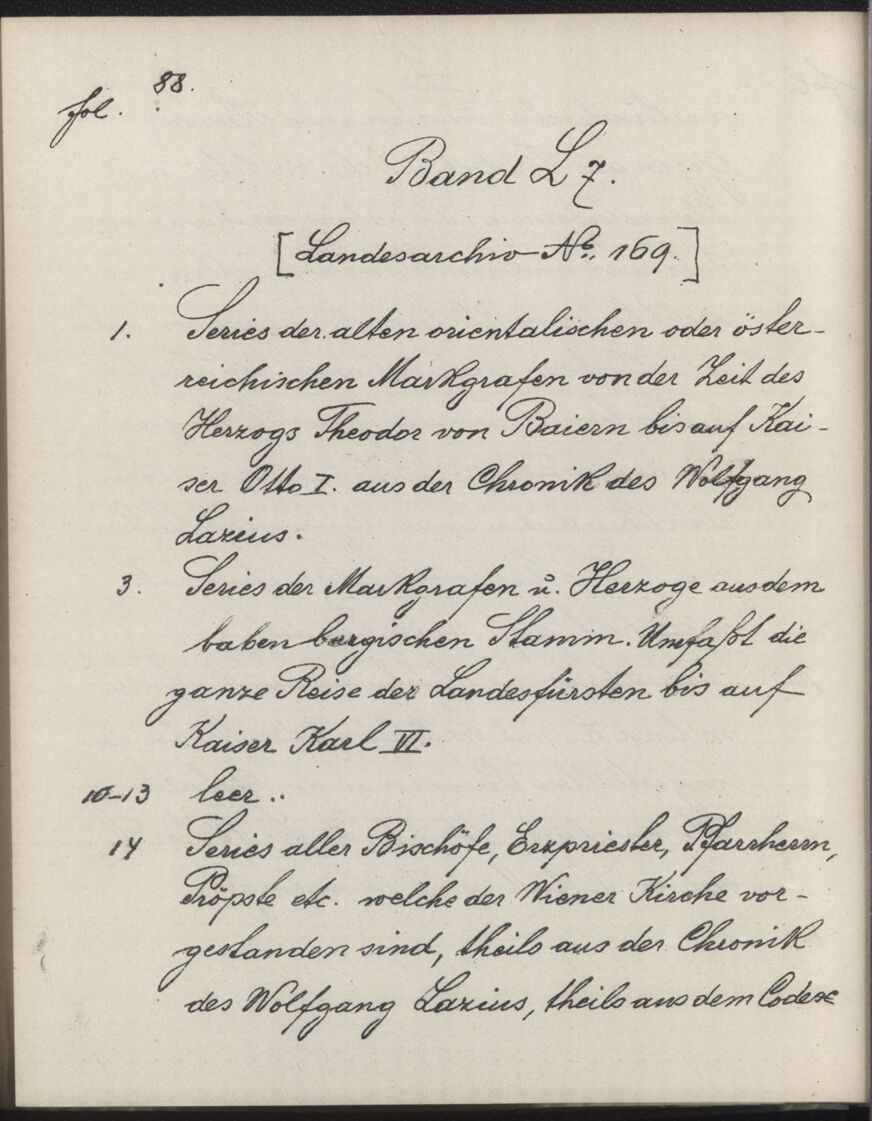 88.
fol.
Band L 7.
[Landesarchiv No. 169.]
1. Series der alten orientalischen oder öster-
reichischen Markgrafen von der Zeit des
Herzogs Theodor von Baiern bis auf Kai-
ser Otto I. aus der Chronik des Wolfgang
Lazius.
3. Series der Markgrafen u. Herzoge aus dem
babenbergischen Stamm. Umfaßt die
ganze Reise der Landesfürsten bis auf
Kaiser Karl VI.
10-13 leer.
14 Series aller Bischöfe, Erzpriester, Pfarrherrn,
Pröpste etc. welche der Wiener Kirche vor-
gestanden sind, theils aus der Chronik
des Wolfgang Lazius, theils aus dem Codex